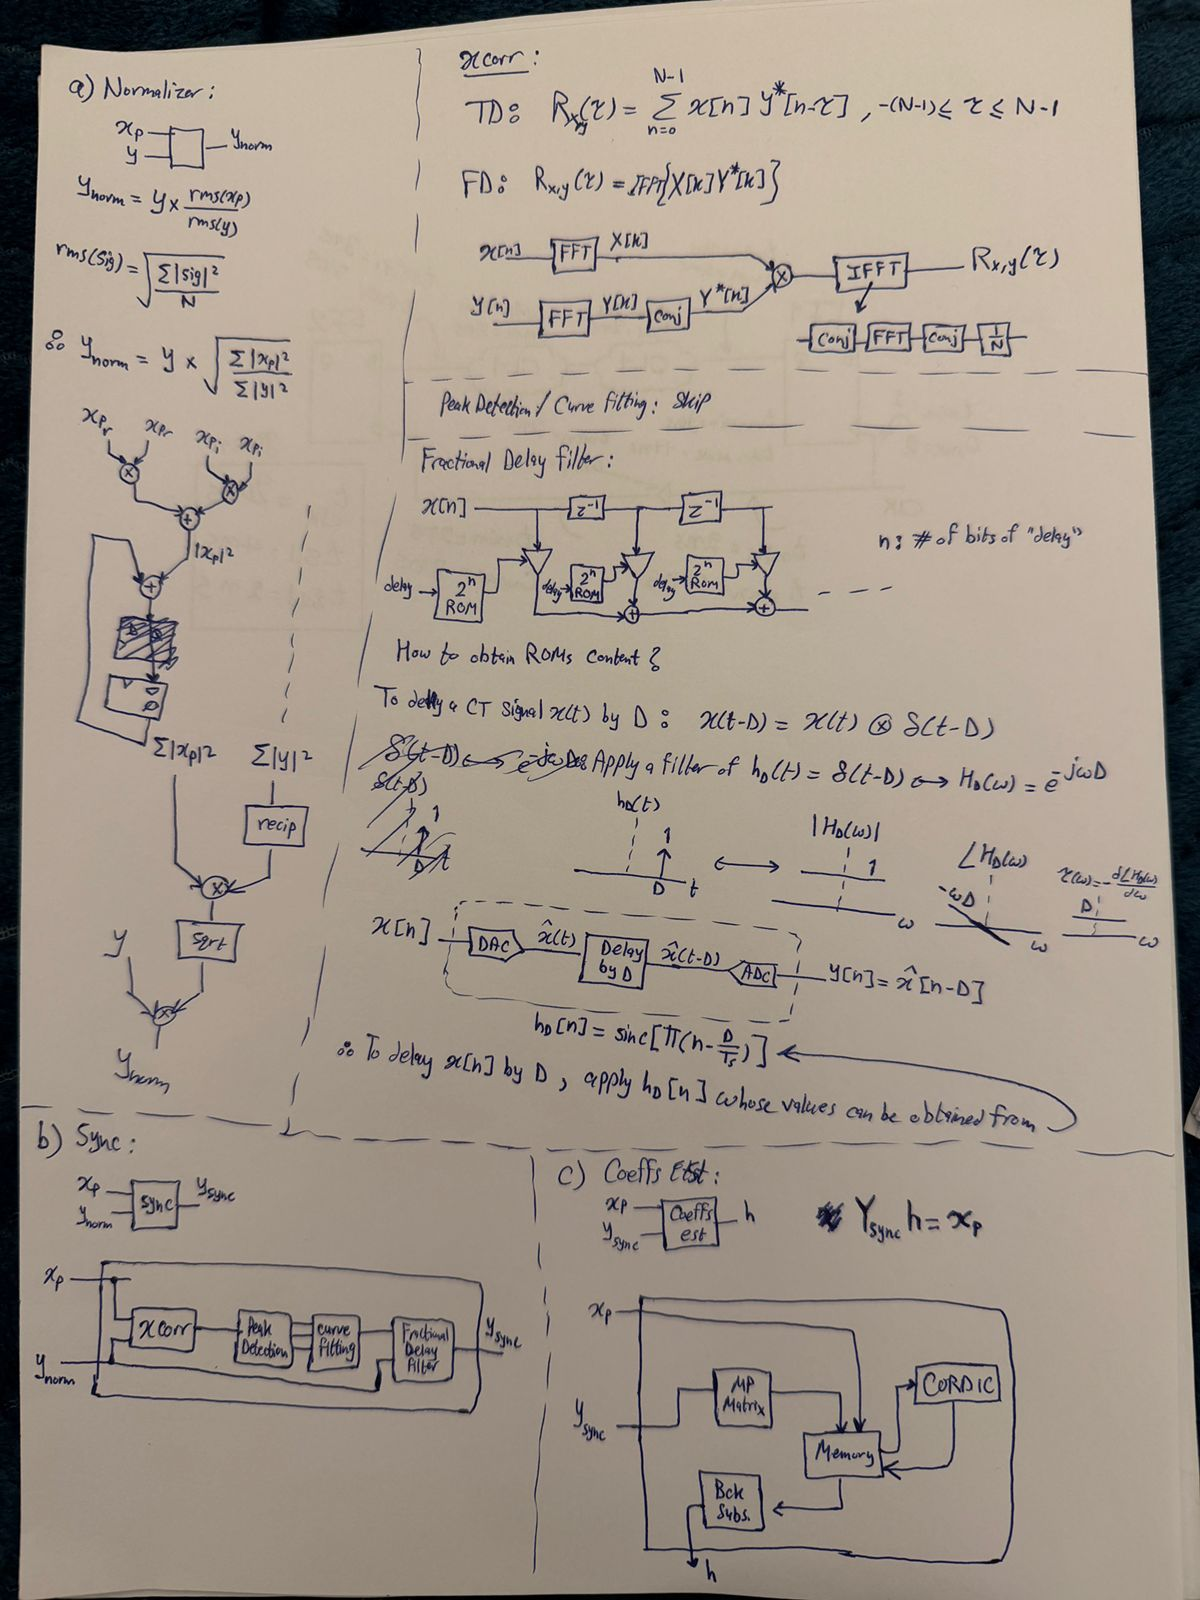 a) Normalizer:
xp
y
ynorm
ynorm = y x rms(xp) / rms(y)
rms(sig) = √(Σ|sig|² / N)
∴ ynorm = y x √(Σ|xp|² / Σ|y|²)
xpr xpr xpi xpi
x x
+
|xp|²
+
Σ|xp|² Σ|y|²
recip
x
y sqrt
x
ynorm
xcorr:
TD: Rx,y(τ) = Σ n=0 N-1 x[n] y*[n-τ] , -(N-1) ≤ τ ≤ N-1
FD: Rx,y(τ) = IFFT{X[k]Y*[k]}
x[n] FFT X[k] x IFFT Rx,y(τ)
y[n] FFT Y[k] conj Y*[k]
conj FFT conj 1/N
Peak Detection / Curve fitting: Skip
Fractional Delay filter:
x[n] z⁻¹ z⁻¹
n: # of bits of "delay"
delay 2ⁿ ROM delay 2ⁿ ROM delay 2ⁿ ROM
+ +
How to obtain ROMs content?
To delay a CT signal x(t) by D: x(t-D) = x(t) ⊗ δ(t-D)
Apply a filter of hD(t) = δ(t-D) ↔ HD(ω) = e^-jωD
hD(t) 1 D t
|HD(ω)| 1 ω
∠HD(ω) -ωD ω
τ(ω) = -d∠HD(ω)/dω D ω
x[n] DAC x̂(t) Delay by D x̂(t-D) ADC y[n] = x̂[n-D]
hD[n] = sinc[π(n - D/Ts)]
∴ To delay x[n] by D, apply hD[n] whose values can be obtained from
b) Sync:
xp
ynorm
sync
ysync
xp
ynorm
xcorr
Peak Detection
curve fitting
Fractional Delay filter
ysync
c) Coeffs Est:
xp
ysync
Coeffs est
h
Ysync h = xp
xp
ysync
MP Matrix
CORDIC
Memory
Bck Subs.
h